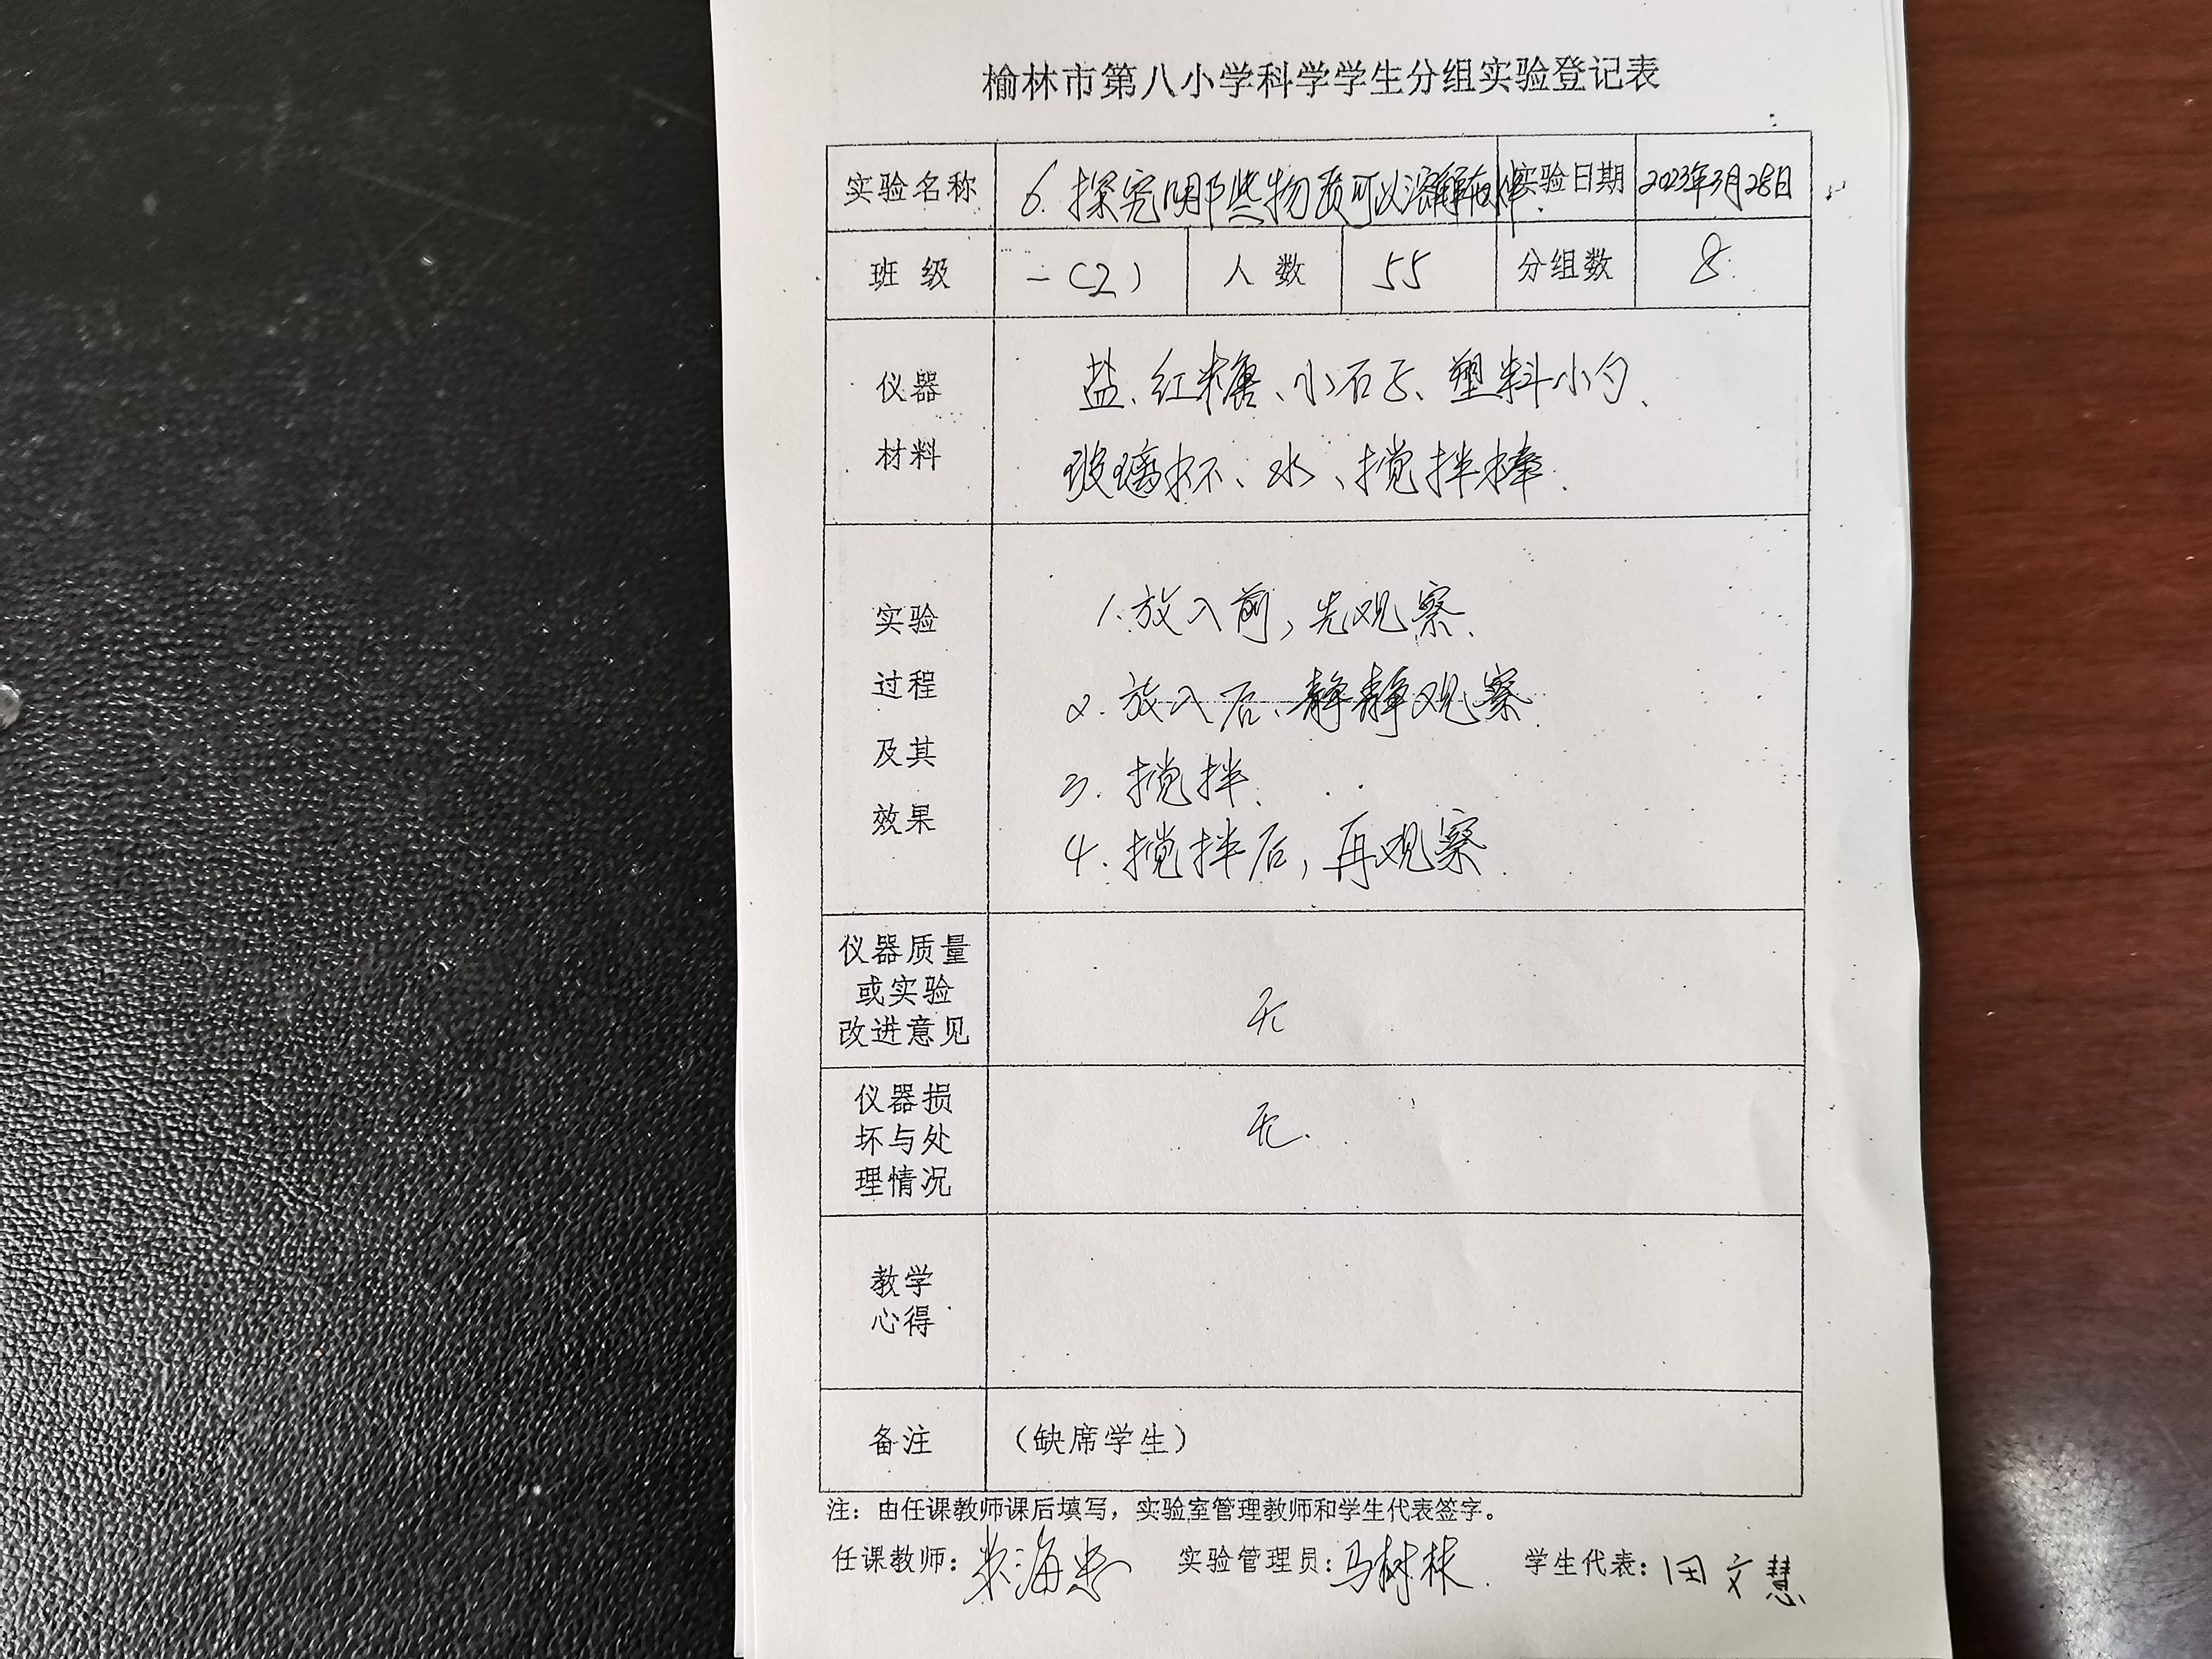 榆林市第八小学科学学生分组实验登记表
实验名称 6.探究哪些物质可以溶解在水中. 实验日期 2023年3月28日
班 级 一(2) 人 数 55 分组数 8
仪器 盐、红糖、小石子、塑料小勺、
材料 玻璃杯、水、搅拌棒.
实验 1.放入前,先观察.
过程 2.放入后、静静观察.
及其 3.搅拌.
效果 4.搅拌后,再观察.
仪器质量
或实验
改进意见
无
仪器损
坏与处
理情况
无.
教学
心得
备注 (缺席学生)
注：由任课教师课后填写，实验室管理教师和学生代表签字。
任课教师: 实验管理员: 马树林 学生代表: 田文慧